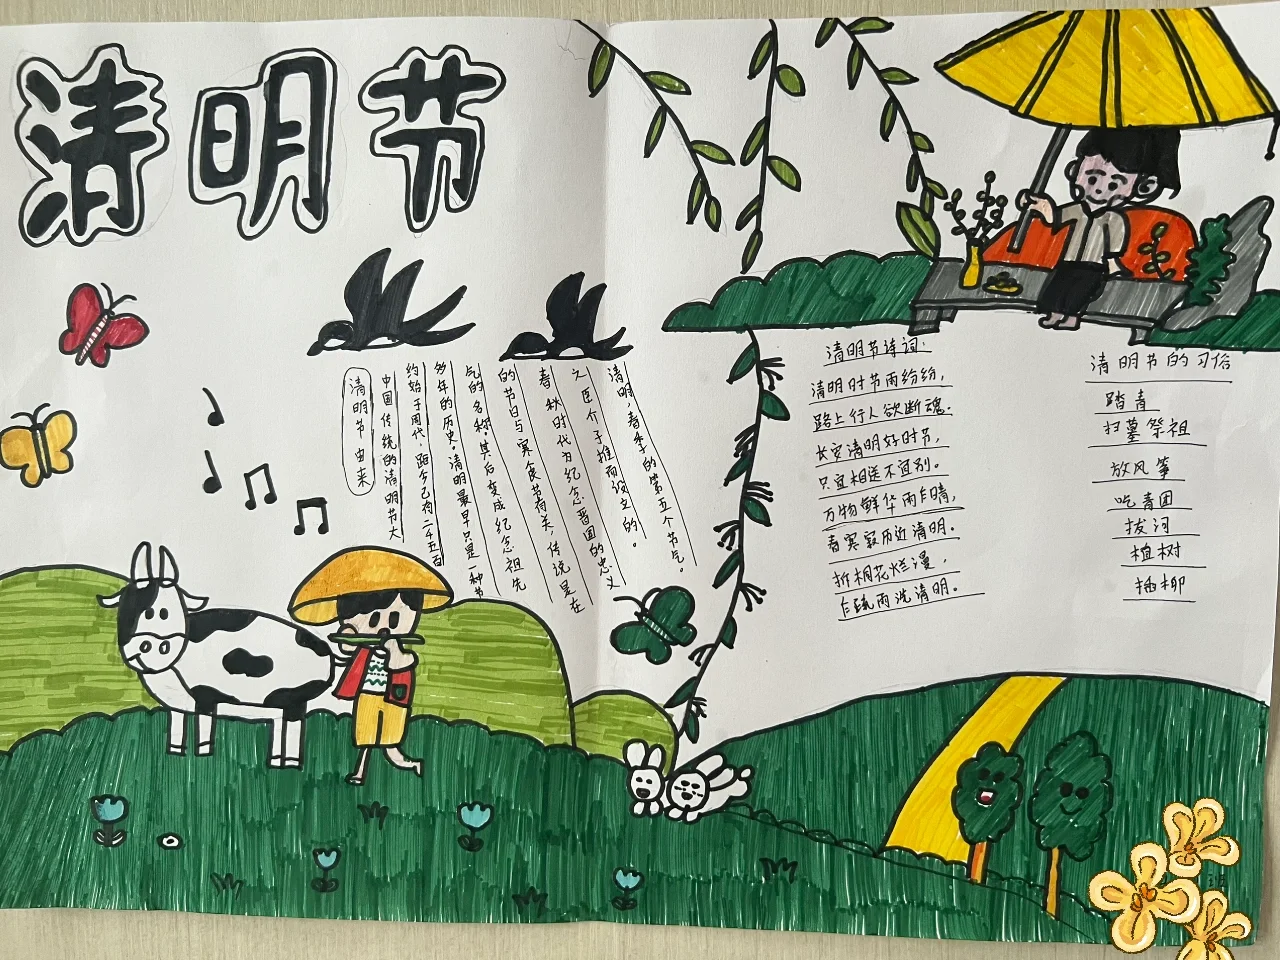 清明节
清明节由来
中国传统的清明节大
约始于周代,距今已有二千五百
多年的历史。清明最早只是一种节
气的名称,其后变成纪念祖先
的节日与寒食节有关,传说是在
春秋时代为纪念晋国的忠义
之臣介子推而设立的。
清明,春季的第五个节气。
清明节诗词:
清明时节雨纷纷,
路上行人欲断魂.
长安清明好时节,
只宜相送不宜别。
万物鲜华雨乍晴,
春寒寂历近清明。
折桐花烂漫,
乍疏雨洗清明。
清明节的习俗
踏青
扫墓祭祖
放风筝
吃青团
拔河
植树
插柳